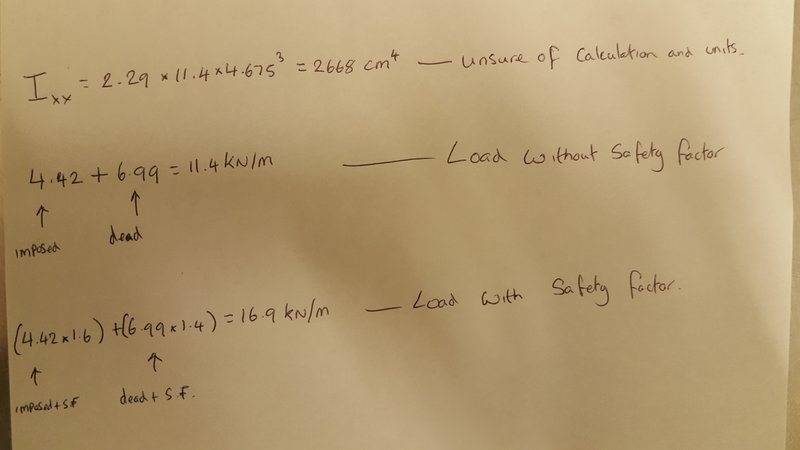 Ixx = 2.29 × 11.4 × 4.675³ = 2668 cm⁴ — unsure of calculation and units.
4.42 + 6.99 = 11.4 kN/m — Load without Safety factor
↑ ↑
imposed dead
(4.42 × 1.6) + (6.99 × 1.4) = 16.9 kN/m — Load with Safety factor.
↑ ↑
imposed + S.F dead + S.F.